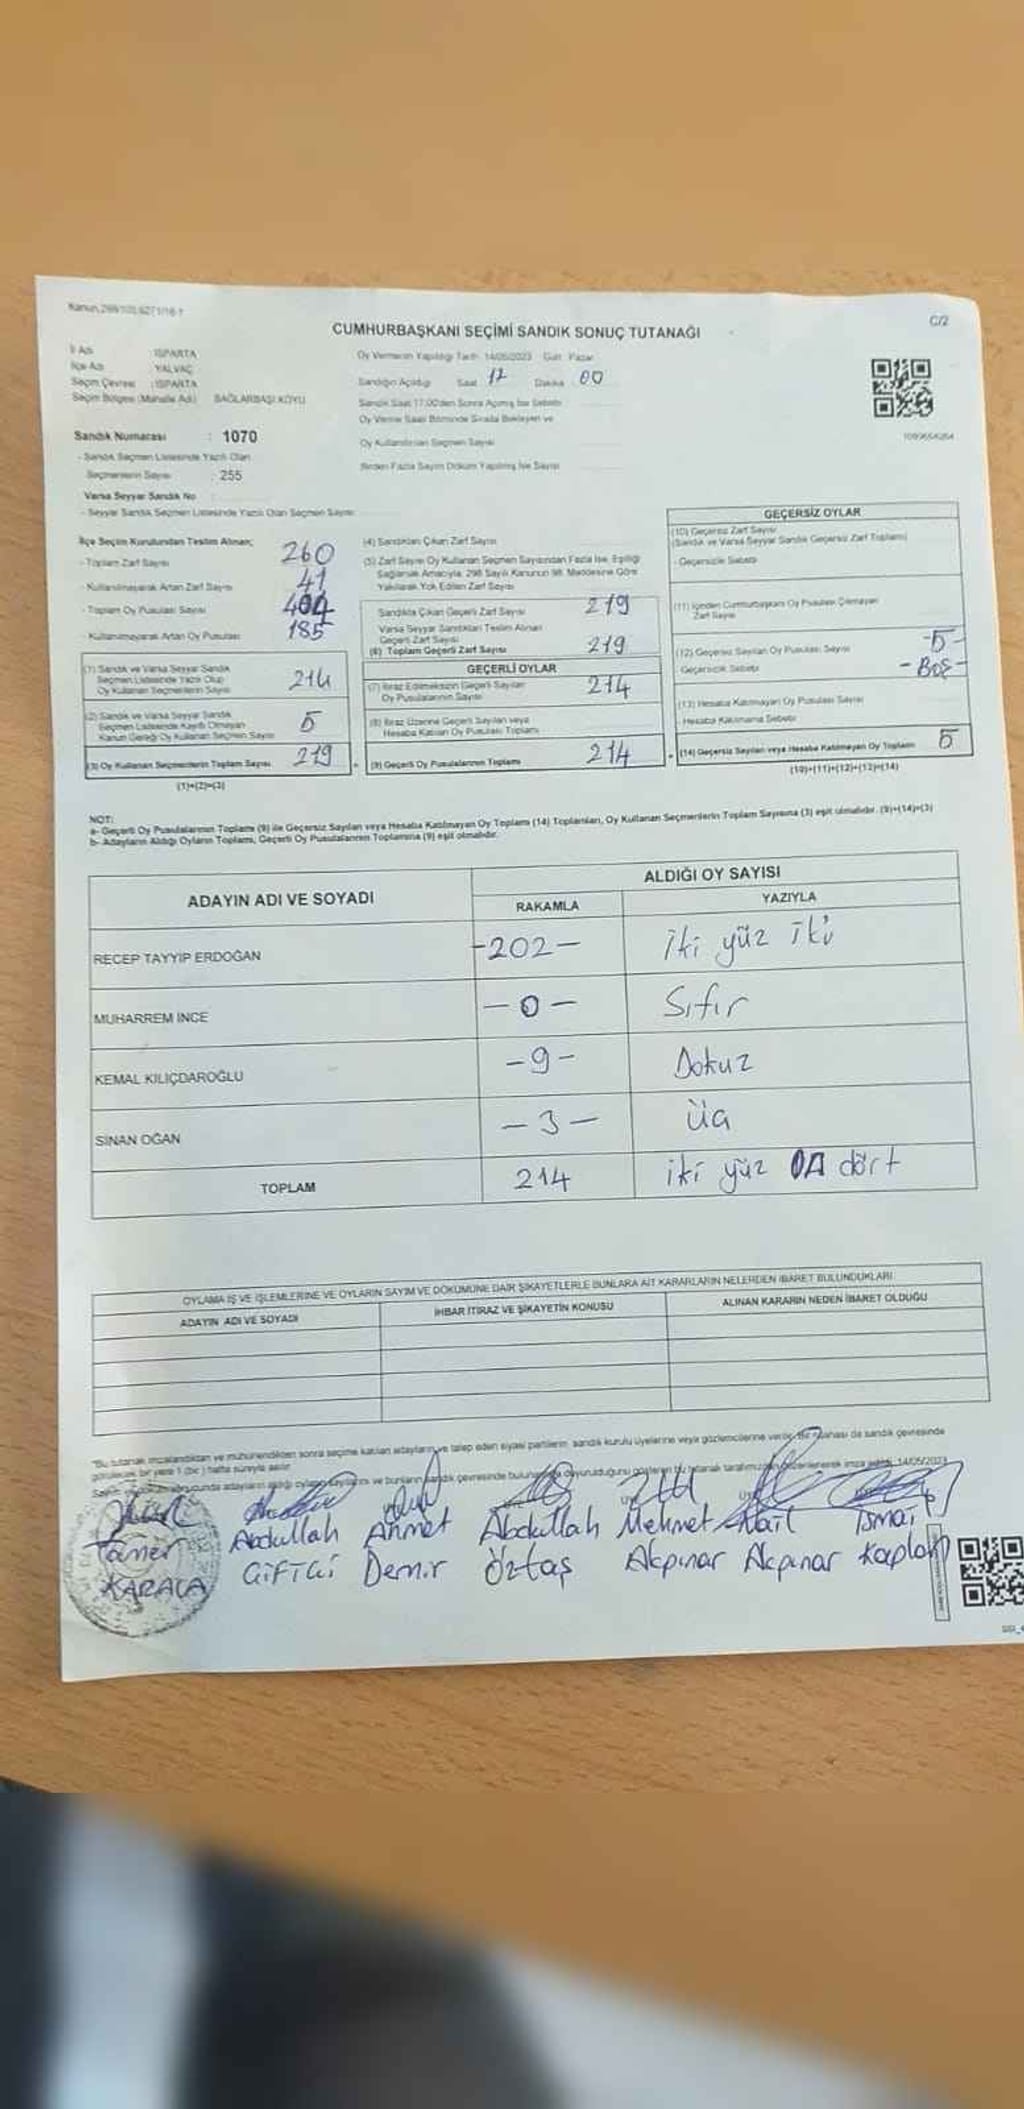 Kanun,298/103,6271/16-1
C/2
CUMHURBAŞKANI SEÇİMİ SANDIK SONUÇ TUTANAĞI
İl Adı ISPARTA
İlçe Adı YALVAÇ
Seçim Çevresi : ISPARTA
Seçim Bölgesi (Mahalle Adı) BAĞLARBAŞI KÖYÜ
Sandık Numarası : 1070
- Sandık Seçmen Listesinde Yazılı Olan
Seçmenlerin Sayısı : 255
Varsa Seyyar Sandık No
- Seyyar Sandık Seçmen Listesinde Yazılı Olan Seçmen Sayısı
Oy Vermenin Yapıldığı Tarih 14/05/2023 Gün Pazar
Sandığın Açıldığı Saat 17 Dakika 00
Sandık Saat 17:00'den Sonra Açılmış İse Sebebi
Oy Verme Saati Bitiminde Sırada Bekleyen ve
Oy Kullandırılan Seçmen Sayısı
Birden Fazla Sayım Döküm Yapılmış İse Sayısı
İlçe Seçim Kurulundan Teslim Alınan;
- Toplam Zarf Sayısı 260
- Kullanılmayarak Artan Zarf Sayısı 41
- Toplam Oy Pusulası Sayısı 404
- Kullanılmayarak Artan Oy Pusulası 185
(1) Sandık ve Varsa Seyyar Sandık
Seçmen Listesinde Yazılı Olup
Oy Kullanan Seçmenlerin Sayısı 214
(2) Sandık ve Varsa Seyyar Sandık
Seçmen Listesinde Kayıtlı Olmayan
Kanun Gereği Oy Kullanan Seçmen Sayısı 5
(3) Oy Kullanan Seçmenlerin Toplam Sayısı 219
(1)+(2)=(3)
(4) Sandıktan Çıkan Zarf Sayısı
(5) Zarf Sayısı Oy Kullanan Seçmen Sayısından Fazla İse, Eşitliği
Sağlamak Amacıyla, 298 Sayılı Kanunun 98. Maddesine Göre
Yakılarak Yok Edilen Zarf Sayısı
Sandıkta Çıkan Geçerli Zarf Sayısı 219
Varsa Seyyar Sandıktan Teslim Alınan
Geçerli Zarf Sayısı
(6) Toplam Geçerli Zarf Sayısı 219
GEÇERLİ OYLAR
(7) İtiraz Edilmeksizin Geçerli Sayılan
Oy Pusulalarının Sayısı 214
(8) İtiraz Üzerine Geçerli Sayılan veya
Hesaba Katılan Oy Pusulası Toplamı
(9) Geçerli Oy Pusulalarının Toplamı 214
GEÇERSİZ OYLAR
(10) Geçersiz Zarf Sayısı
(Sandık ve Varsa Seyyar Sandık Geçersiz Zarf Toplamı)
- Geçersizlik Sebebi
(11) İçinden Cumhurbaşkanı Oy Pusulası Çıkmayan
Zarf Sayısı
(12) Geçersiz Sayılan Oy Pusulası Sayısı -5-
Geçersizlik Sebebi - Boş -
(13) Hesaba Katılmayan Oy Pusulası Sayısı
- Hesaba Katılmama Sebebi
(14) Geçersiz Sayılan veya Hesaba Katılmayan Oy Toplamı 5
(10)+(11)+(12)+(13)=(14)
NOT:
a- Geçerli Oy Pusulalarının Toplamı (9) ile Geçersiz Sayılan veya Hesaba Katılmayan Oy Toplamı (14) Toplamları, Oy Kullanan Seçmenlerin Toplam Sayısına (3) eşit olmalıdır. (9)+(14)=(3)
b- Adayların Aldığı Oyların Toplamı, Geçerli Oy Pusulalarının Toplamına (9) eşit olmalıdır.
ADAYIN ADI VE SOYADI
ALDIĞI OY SAYISI
RAKAMLA YAZIYLA
RECEP TAYYİP ERDOĞAN -202- iki yüz iki
MUHARREM İNCE -0- Sıfır
KEMAL KILIÇDAROĞLU -9- Dokuz
SİNAN OĞAN -3- üç
TOPLAM 214 iki yüz on dört
OYLAMA İŞ VE İŞLEMLERİNE VE OYLARIN SAYIM VE DÖKÜMÜNE DAİR ŞİKAYETLERLE BUNLARA AİT KARARLARIN NELERDEN İBARET BULUNDUKLARI
ADAYIN ADI VE SOYADI İHBAR İTİRAZ VE ŞİKAYETİN KONUSU ALINAN KARARIN NEDEN İBARET OLDUĞU
"Bu tutanak imzalandıktan ve mühürlendikten sonra seçime katılan adayların ve talep eden siyasi partilerin sandık kurulu üyelerine veya gözlemcilerine verilir. Bir nüshası da sandık çevresinde
görülecek bir yere 1 (bir) hafta süreyle asılır.
Taner Abdullah Ahmet Abdullah Mehmet Nail İsmail
KARACA ÇİFTÇİ Demir Öztaş Akpınar Akpınar Kaplan